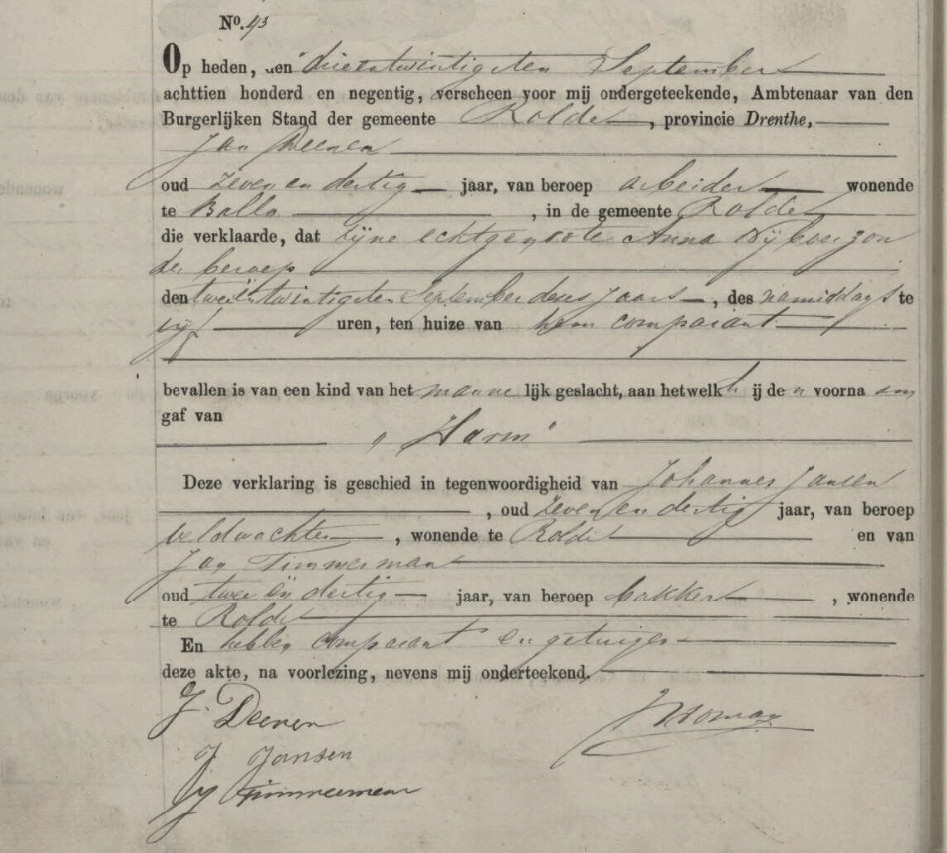 No. 43
Op heden, den drieentwintigsten September
achttien honderd en negentig, verscheen voor mij ondergeteekende, Ambtenaar van den
Burgerlijken Stand der gemeente Rolde, provincie Drenthe,
Jan Deenen
oud zeven en dertig jaar, van beroep arbeider wonende
te Balloo, in de gemeente Rolde
die verklaarde, dat zijne echtgenoote Anna Nijboer zon
der beroep
den tweeëntwintigsten September dezes jaars, des namiddags te
vijf uren, ten huize van hem comparant
bevallen is van een kind van het mannelijk geslacht, aan hetwelk hij den voornaam
gaf van
"Harm"
Deze verklaring is geschied in tegenwoordigheid van Johannes Jansen
, oud zeven en dertig jaar, van beroep
veldwachter, wonende te Rolde en van
Jan Timmerman
oud twee en dertig jaar, van beroep bakker, wonende
te Rolde
En hebben comparant en getuigen
deze akte, na voorlezing, nevens mij onderteekend.
J. Deenen
J Jansen
J Timmerman